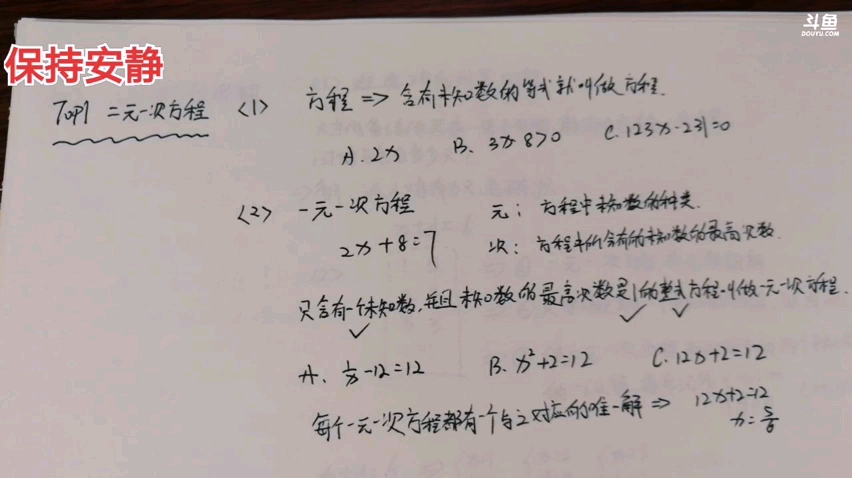 斗鱼
DOUYU.COM
保持安静
Top1 二元一次方程 <1> 方程 => 含有未知数的等式就叫做方程.
A. 2x B. 3x-8>0 C. 123x-231=0
<2> 一元一次方程 元: 方程中未知数的种类.
2x+8=7 次: 方程中所含有的未知数的最高次数.
只含有一个未知数,并且未知数的最高次数是1的整式方程叫做一元一次方程.
A. 1/x-12=12 B. x²+2=12 C. 12x+2=12
每个一元一次方程都有一个与之对应的唯一解 => 12x+2=12
x=5/6